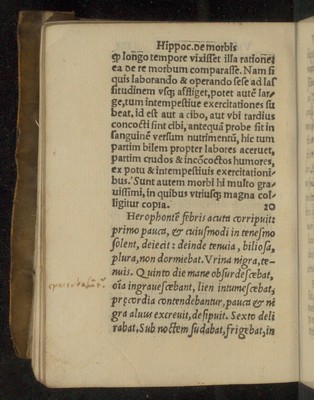 Hippoc. de morbis
ꝙ longo tempore vixisset illa rationet
ea de re morbum comparasse. Nam si
quis laborando & operando sese ad las
situdinem vsqꝫ affliget, potet autẽ lar-
ge, tum intempestiue exercitationes su
beat. id est aut a cibo, aut vbi tardius
concocti sint cibi, antequã probe sit in
sanguinẽ versum nutrimentũ, hic tum
partim bilem propter labores aceruet,
partim crudos & incõcoctos humores,
ex potu & intempestiuis exercitationi-
bus. Sunt autem morbi hi multo gra-
uissimi, in quibus vtriusqꝫ magna col-
ligitur copia. 20
Herophontẽ febris acuta corripuit:
primo pauca, & cuiusmodi in tenesmo
solent, deiecit: deinde tenuia, biliosa,
plura, non dormiebat. Vrina nigra, te-
nuis. Quinto die mane obsurdescebat,
oĩa ingrauescebant, lien intumescebat,
præcordia contendebantur, pauca & ni
gra aluus excreuit, desipuit. Sexto deli
rabat. Sub noctem sudabat, frigebat, in